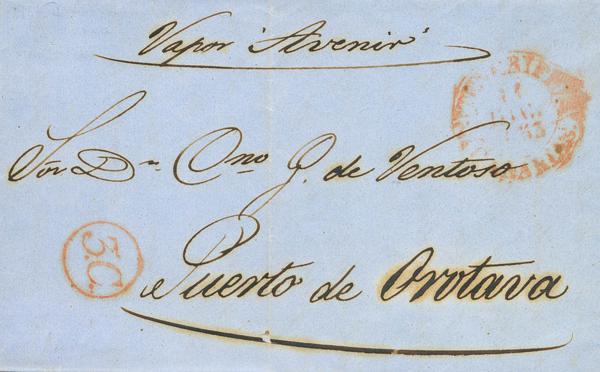 Vapor "Avenir"
Sor Dn Cno J. de Ventoso
Puerto de Orotava
3C.